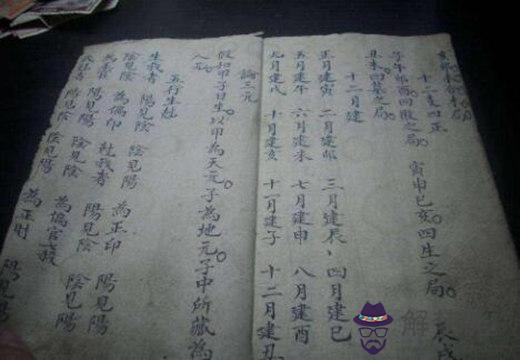 十二支四正
子午卯酉。四敗之局。 寅申巳亥。四生之局。 辰戌
丑未。四墓之局。
十二月建
正月建寅 二月建卯 三月建辰、四月建巳
五月建午 六月建未 七月建申 八月建酉
九月建戌 十月建亥 十一月建子 十二月建丑
論三元
假如甲子日生。以甲為天元。子為地元。子中所藏為
人元。
五行生尅
生我者 陽見陰 陰見陽 為正印 陽見陽
陰見陰 為偏印 尅我者 陽見陰 陰見陽
為正官 陽見陽 陰見陰 為偏官
陽見陰 陰見陽 為正財 陽見陽